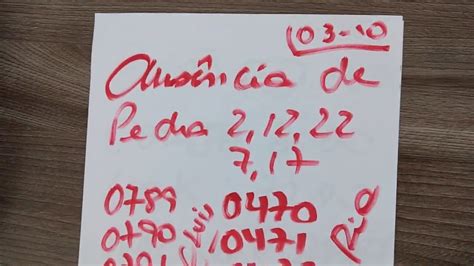 03-10
Ausência de
Pedra 2,12,22
7,17
0789 0470
0790 0471
Rio